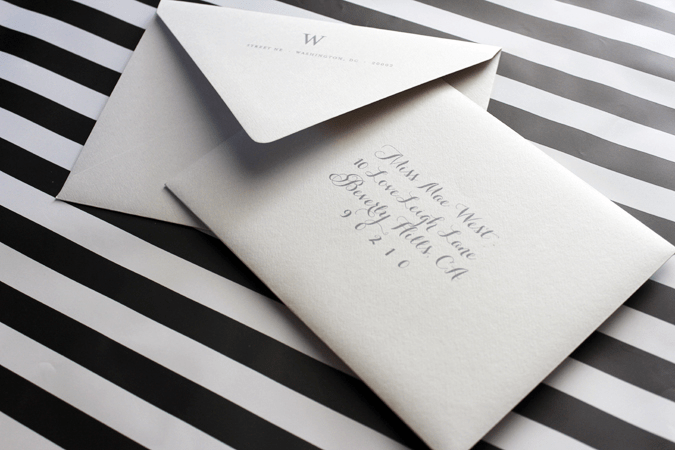 W
STREET
WASHINGTON, DC
Miss Mae West
10 LoveLeigh Lane
Beverly Hills CA
90210